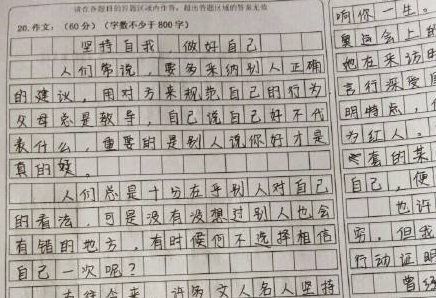 请在各题目的答题区域内作答，超出答题区域的答案无效
20.作文：（60分）（字数不少于800字）
坚持自我，做好自己
人们常说，要多采纳别人正确
的建议，用对方来规范自己的行为
父母总是教导，自己说自己好不代
表什么，重要的是别人说你好才是
真的好。
人们总是十分在乎别人对自己
的看法，可是没有没想过别人也会
有错的地方，有时候何不选择相信
自己一次呢？
古往今来，许多文人名人坚持
响你一生。
奥运会上的
她在采访中
言行深受
明特点，
为红人。
套的某
自己，便
也许
穷，但我
行动证明
曾经